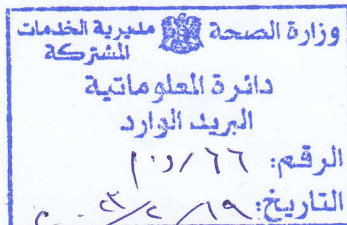 وزارة الصحة مديرية الخدمات المشتركة
دائرة المعلوماتية
البريد الوارد
الرقم: ٦٦
التاريخ: ١٩/٢/٢٣